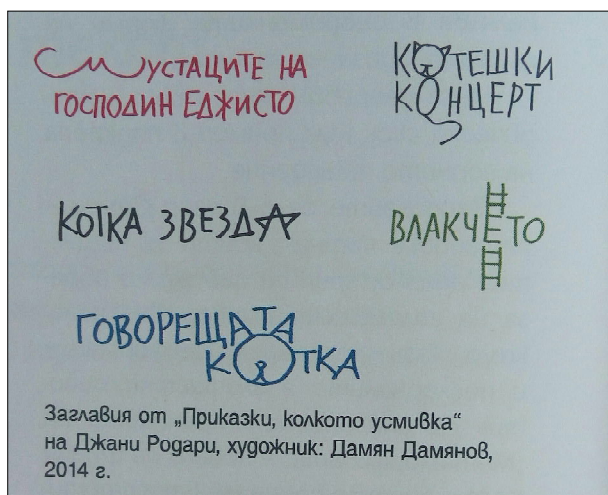 МУСТАЦИТЕ НА
ГОСПОДИН ЕДЖИСТО
КОТЕШКИ
КОНЦЕРТ
КОТКА ЗВЕЗДА
ВЛАКЧЕТО
ГОВОРЕЩАТА
КОТКА
Заглавия от „Приказки, колкото усмивка“
на Джани Родари, художник: Дамян Дамянов,
2014 г.